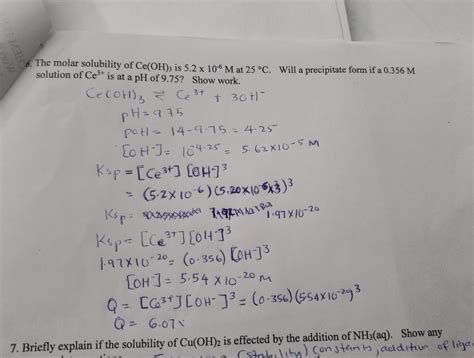 6. The molar solubility of Ce(OH)₃ is 5.2 x 10⁻⁶ M at 25 °C. Will a precipitate form if a 0.356 M
solution of Ce³⁺ is at a pH of 9.75? Show work.
Ce(OH)₃ ⇌ Ce³⁺ + 3OH⁻
pH = 9.75
pOH = 14-9.75 = 4.25
[OH⁻] = 10^4.25 = 5.62x10⁻⁵ M
Ksp = [Ce³⁺] [OH⁻]³
= (5.2 x 10⁻⁶) (5.20x10⁻⁶x3)³
Ksp = 1.97x10⁻²⁰
Ksp = [Ce³⁺] [OH⁻]³
1.97x10⁻²⁰ = (0.356) [OH⁻]³
[OH⁻] = 5.54 x10⁻²⁰ M
Q = [Ce³⁺] [OH⁻]³ = (0.356) (5.54x10⁻²⁰)³
Q = 6.07x
7. Briefly explain if the solubility of Cu(OH)₂ is effected by the addition of NH₃(aq). Show any
(stability) constants, addition of